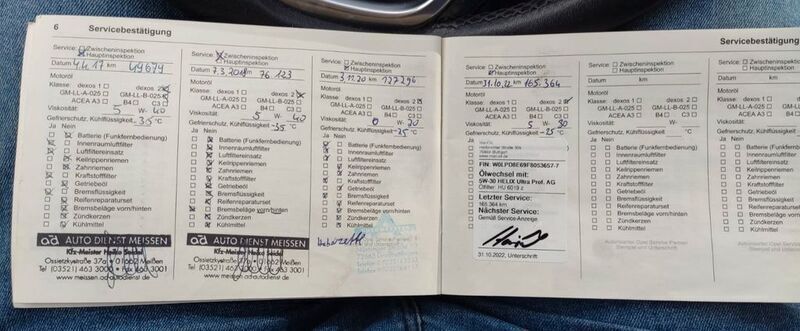 6 Servicebestätigung
Service: Zwischeninspektion
Hauptinspektion
Datum 4.4.17 km 49679
Motoröl
Klasse: dexos 1 dexos 2
GM-LL-A-025 GM-LL-B-025
ACEA A3 B4 C3
Viskosität: 5 W- 40
Gefrierschutz, Kühlflüssigkeit -35 °C
Ja Nein
Batterie (Funkfernbedienung)
Innenraumluftfilter
Luftfiltereinsatz
Keilrippenriemen
Zahnriemen
Kraftstofffilter
Getriebeöl
Bremsflüssigkeit
Reifenreparaturset
Bremsbeläge vorn/hinten
Zündkerzen
Kühlmittel
ad AUTO DIENST MEISSEN
Kfz-Meister Heiko Seidel
Ossietzkystraße 37a • 01662 Meißen
Tel (03521) 463 3000 • Fax 463 3001
www.meissen.ad-autodienst.de
Service: Zwischeninspektion
Hauptinspektion
Datum 7.3.2019 km 76 123
Motoröl
Klasse: dexos 1 dexos 2
GM-LL-A-025 GM-LL-B-025
ACEA A3 B4 C3
Viskosität: 5 W- 40
Gefrierschutz, Kühlflüssigkeit -35 °C
Ja Nein
Batterie (Funkfernbedienung)
Innenraumluftfilter
Luftfiltereinsatz
Keilrippenriemen
Zahnriemen
Kraftstofffilter
Getriebeöl
Bremsflüssigkeit
Reifenreparaturset
Bremsbeläge vorn/hinten
Zündkerzen
Kühlmittel
ad AUTO DIENST MEISSEN
Kfz-Meister Heiko Seidel
Ossietzkystraße 37a • 01662 Meißen
Tel (03521) 463 3000 • Fax 463 3001
www.meissen.ad-autodienst.de
Service: Zwischeninspektion
Hauptinspektion
Datum 3.11.20 km 127296
Motoröl
Klasse: dexos 1 dexos 2
GM-LL-A-025 GM-LL-B-025
ACEA A3 B4 C3
Viskosität: 0 W-
Gefrierschutz, Kühlflüssigkeit -25 °C
Ja Nein
Batterie (Funkfernbedienung)
Innenraumluftfilter
Luftfiltereinsatz
Keilrippenriemen
Zahnriemen
Kraftstofffilter
Getriebeöl
Bremsflüssigkeit
Reifenreparaturset
Bremsbeläge vorn/hinten
Zündkerzen
Kühlmittel
Servicebestätigung
Service: Zwischeninspektion
Hauptinspektion
Datum 31.10.22 km 165.364
Motoröl
Klasse: dexos 1 dexos 2
GM-LL-A-025 GM-LL-B-025
ACEA A3 B4 C3
Viskosität: 5 W- 30
Gefrierschutz, Kühlflüssigkeit -25 °C
Ja Nein
FIN: W0LPD8E69F8053657-7
Ölwechsel mit:
5W-30 HELIX Ultra Prof. AG
Ölfilter: HU 6019 z
Letzter Service:
165.364 km
Nächster Service:
Gemäß Service-Anzeige
31.10.2022, Unterschrift
Service: Zwischeninspektion
Hauptinspektion
Datum km
Motoröl
Klasse: dexos 1 dexos 2
GM-LL-A-025 GM-LL-B-025
ACEA A3 B4 C3
Viskosität: W-
Gefrierschutz, Kühlflüssigkeit °C
Ja Nein
Batterie (Funkfernbedienung)
Innenraumluftfilter
Luftfiltereinsatz
Keilrippenriemen
Zahnriemen
Kraftstofffilter
Getriebeöl
Bremsflüssigkeit
Reifenreparaturset
Bremsbeläge vorn/hinten
Zündkerzen
Kühlmittel
Autorisierter Opel Service Partner
Stempel und Unterschrift
Service:
Datum
Motoröl
Klasse:
Viskosität:
Ja Nein